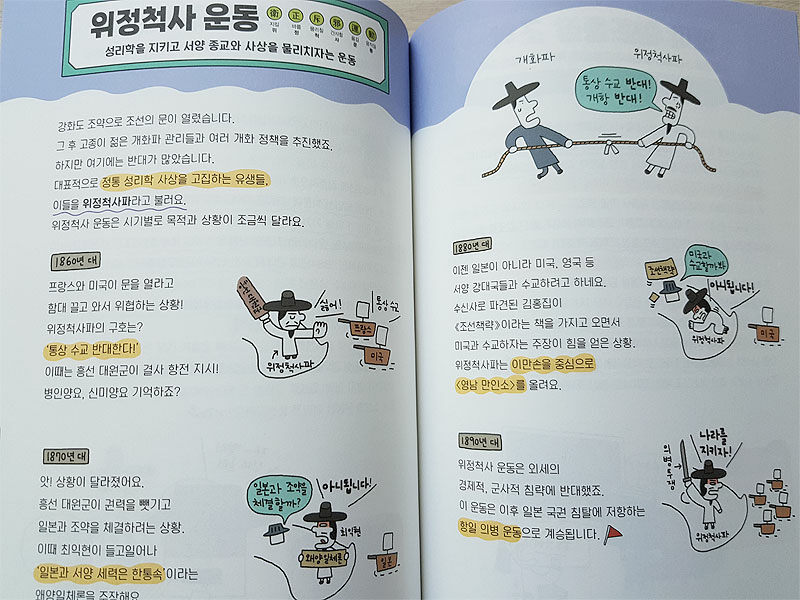 위정척사 운동
衛 正 斥 邪 運 動
지킬 바를 물리칠 간사할 옮길 움직일
위 정 척 사 운 동
성리학을 지키고 서양 종교와 사상을 물리치자는 운동
강화도 조약으로 조선의 문이 열렸습니다.
그 후 고종이 젊은 개화파 관리들과 여러 개화 정책을 추진했죠.
하지만 여기에는 반대가 많았습니다.
대표적으로 정통 성리학 사상을 고집하는 유생들.
이들을 위정척사파라고 불러요.
위정척사 운동은 시기별로 목적과 상황이 조금씩 달라요.
1860년 대
프랑스와 미국이 문을 열라고
함대 끌고 와서 위협하는 상황!
위정척사파의 구호는?
'통상 수교 반대한다!'
이때는 흥선 대원군이 결사 항전 지시!
병인양요, 신미양요 기억하죠?
싫어!
통상 수교
프랑스
미국
위정척사파
1870년 대
앗! 상황이 달라졌어요.
흥선 대원군이 권력을 뺏기고
일본과 조약을 체결하려는 상황.
이때 최익현이 들고일어나
'일본과 서양 세력은 한통속'이라는
왜양일체론을 주장해요.
일본과 조약을
체결할까?
아니됩니다!
최익현
왜양일체론
일본
개화파
위정척사파
통상 수교 반대!
개항 반대!
1880년 대
이젠 일본이 아니라 미국, 영국 등
서양 강대국들과 수교하려고 하네요.
수신사로 파견된 김홍집이
《조선책략》이라는 책을 가지고 오면서
미국과 수교하자는 주장이 힘을 얻은 상황.
위정척사파는 이만손을 중심으로
<영남 만인소>를 올려요.
조선책략
미국과
수교할까봐
아니됩니다!
미국
위정척사파
1890년 대
위정척사 운동은 외세의
경제적, 군사적 침략에 반대했죠.
이 운동은 이후 일본 국권 침탈에 저항하는
항일 의병 운동으로 계승됩니다.
나라를
지키자!
의병투쟁
위정척사파